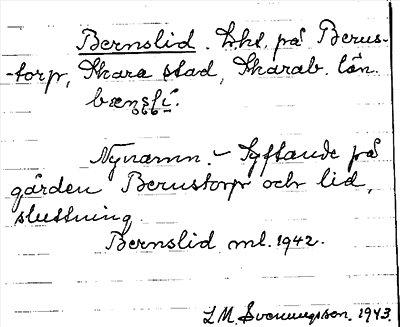 Bernslid. Lhl. på Berns-
-torp, Skara stad, Skarab. län.
Nynamn. - Syftande på
gården Bernstorp och lid,
sluttning.
Bernslid ml. 1942.
L M Svenungsson. 1943.